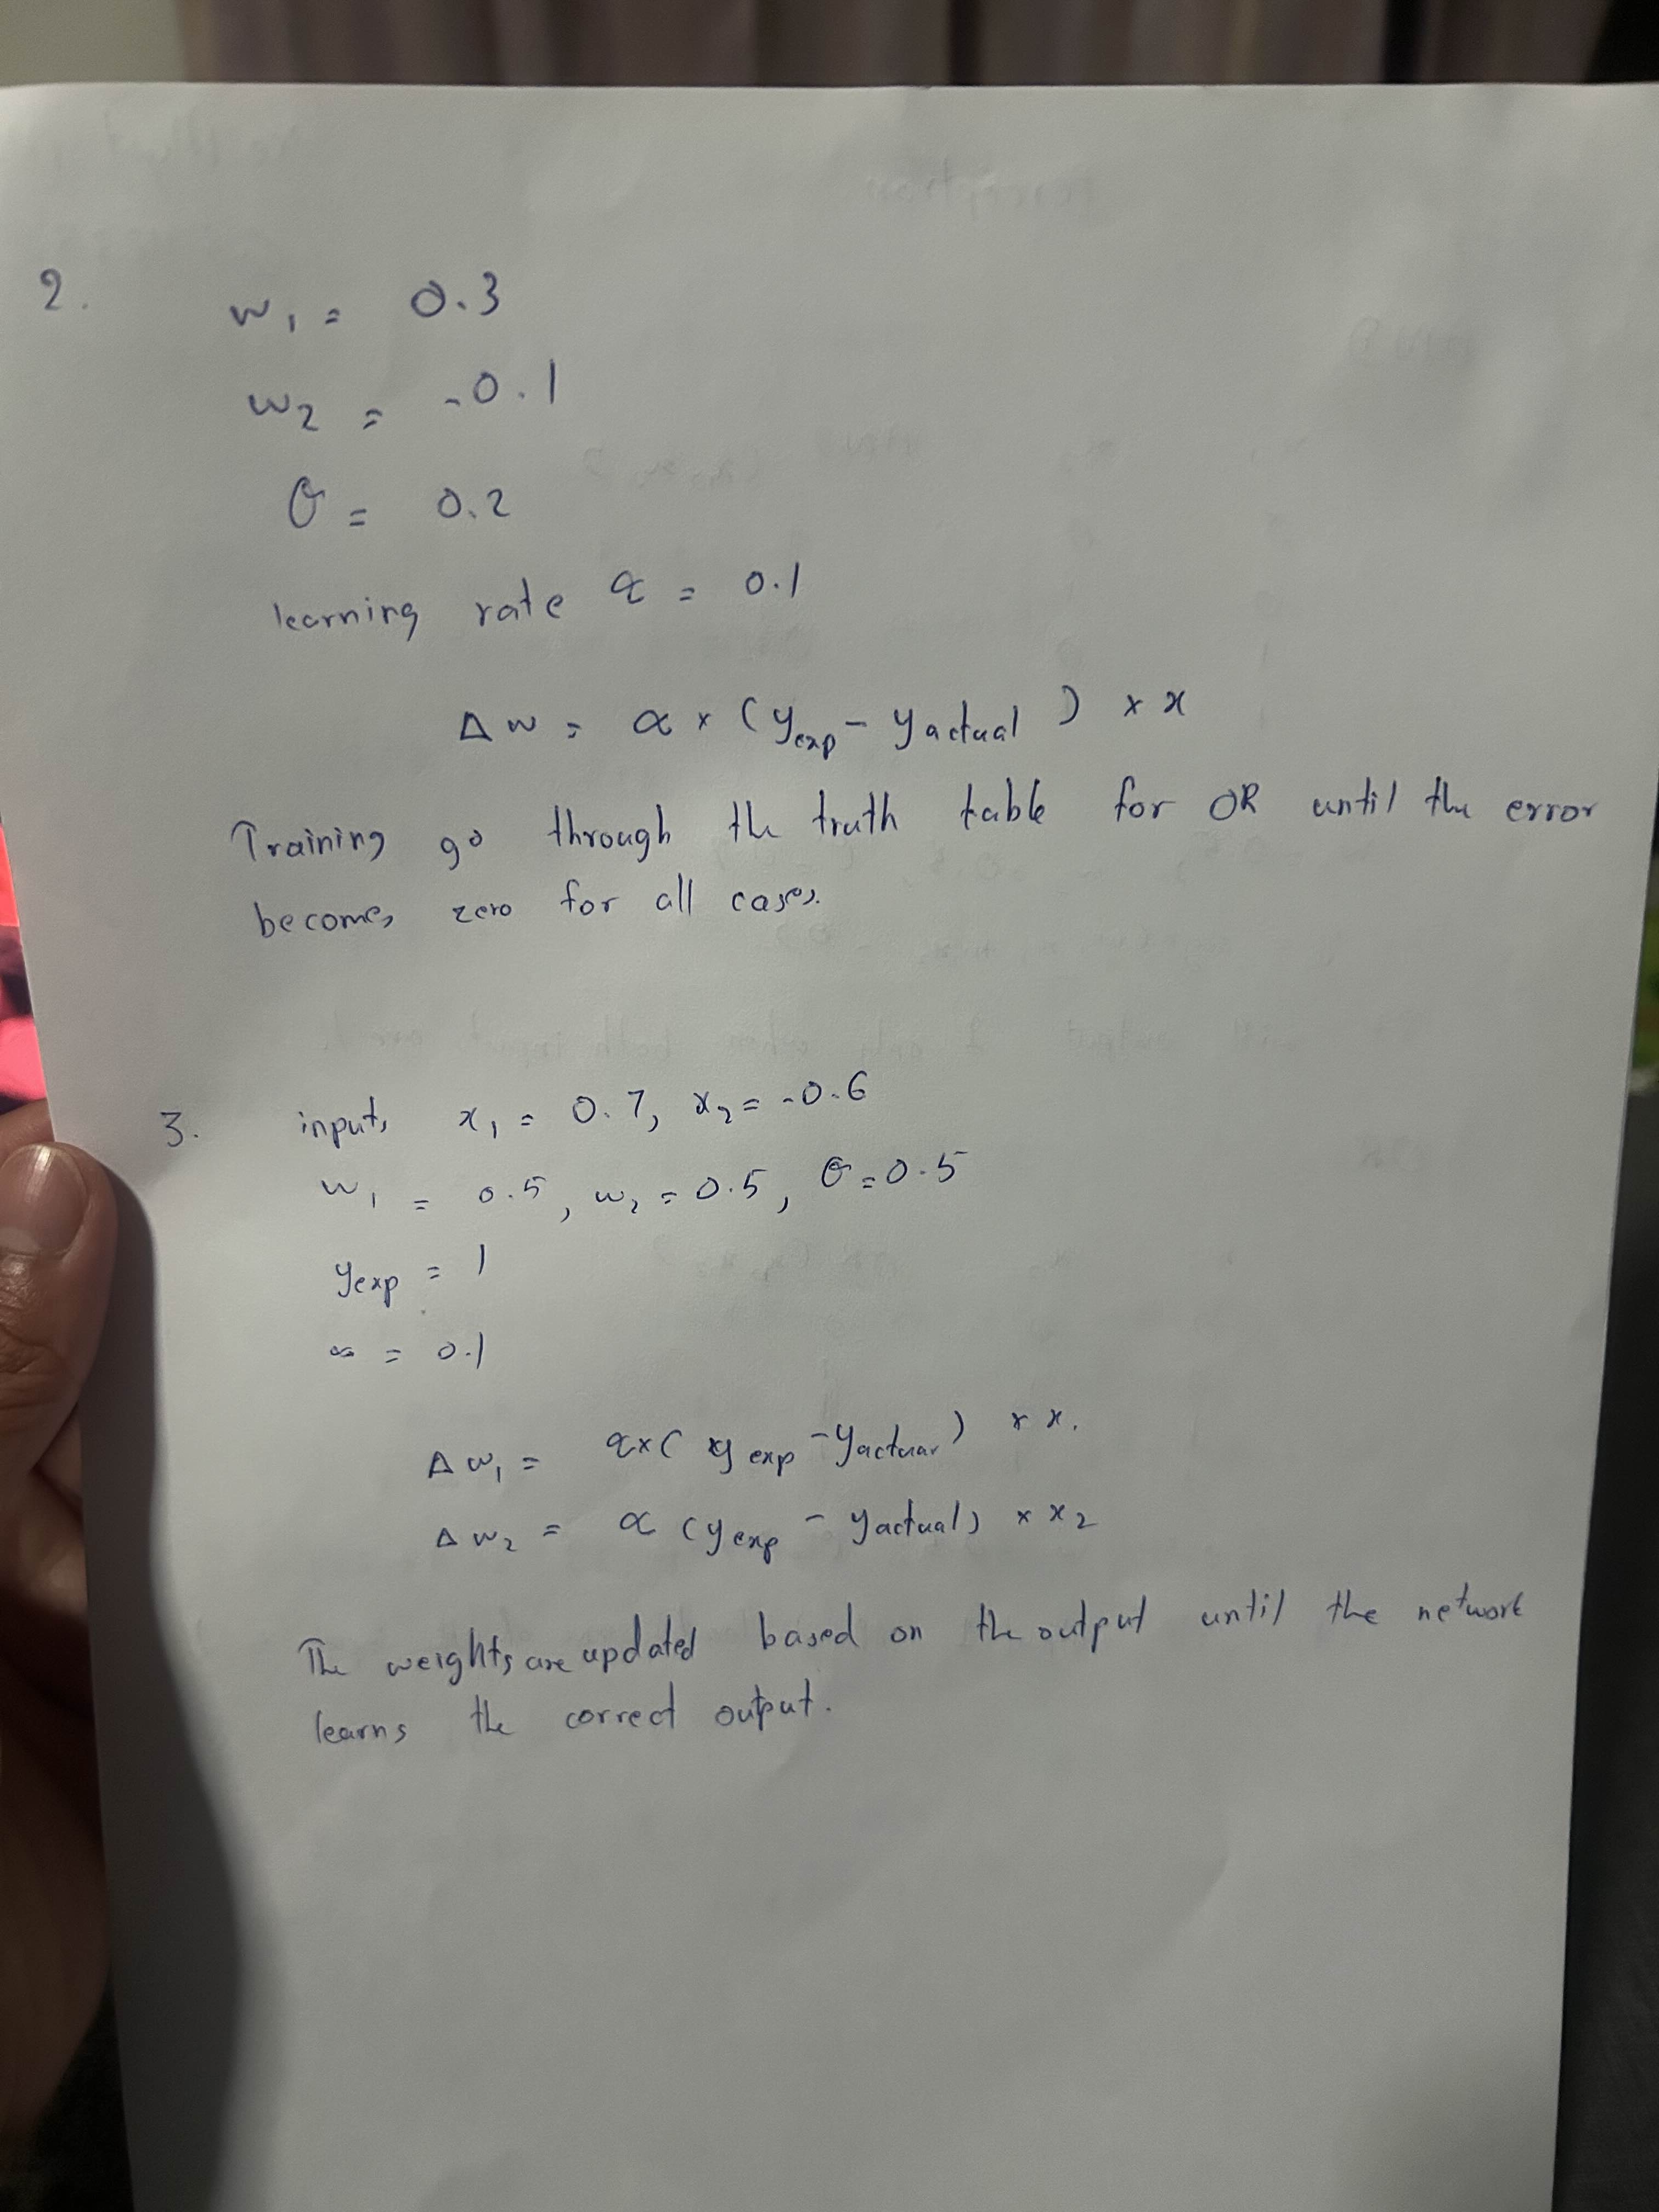 2.
w₁ = 0.3
w₂ = -0.1
θ = 0.2
learning rate α = 0.1
Δw = α × (y_exp - y_actual) × x
Training go through the truth table for OR until the error
becomes zero for all cases.
3. inputs x₁ = 0.7, x₂ = -0.6
w₁ = 0.5, w₂ = 0.5, θ = 0.5
y_exp = 1
α = 0.1
Δw₁ = α × (y_exp - y_actual) × x₁
Δw₂ = α (y_exp - y_actual) × x₂
The weights are updated based on the output until the network
learns the correct output.